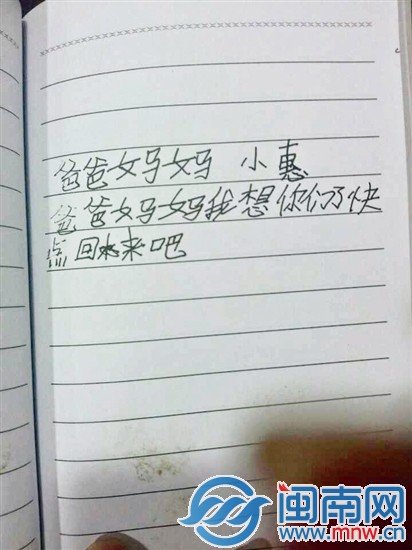 爸爸妈妈 小惠
爸爸妈妈我想你们了快
点回来吧
闽南网
www.mnw.cn